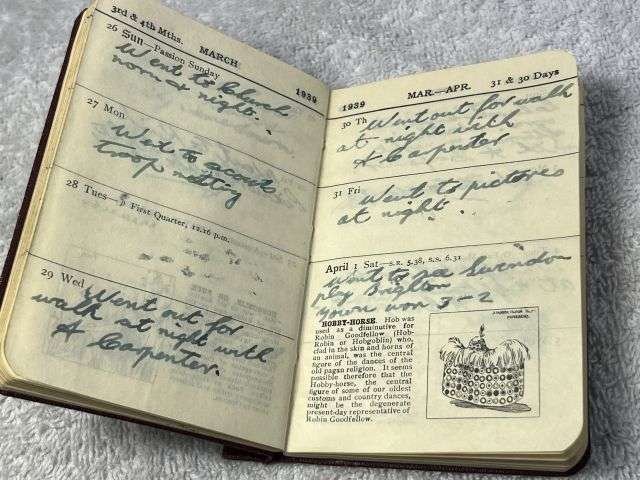 3rd & 4th Mths. MARCH 1939
26 Sun—Passion Sunday
Went to Church
morn & night.
27 Mon
Went to scouts
troop meeting
28 Tues—First Quarter, 12.16 p.m.
29 Wed
Went out for
walk at night with
A Carpenter.
1939 MAR.—APR. 31 & 30 Days
30 Th
Went out for walk
at night with
A Carpenter
31 Fri
Went to pictures
at night.
April 1 Sat—S.R. 5.38, S.S. 6.31
Went to see Swindon
play Brighton
Town won 3-2
HOBBY-HORSE. Hob was
used as a diminutive for
Robin Goodfellow (Hob-
Robin or Hobgoblin) who,
clad in the skin and horns of
an animal, was the central
figure of the dances of the
old pagan religion. It seems
possible therefore that the
Hobby-horse, the central
figure of some of our oldest
customs and country dances,
might be the degenerate
present-day representative of
Robin Goodfellow.